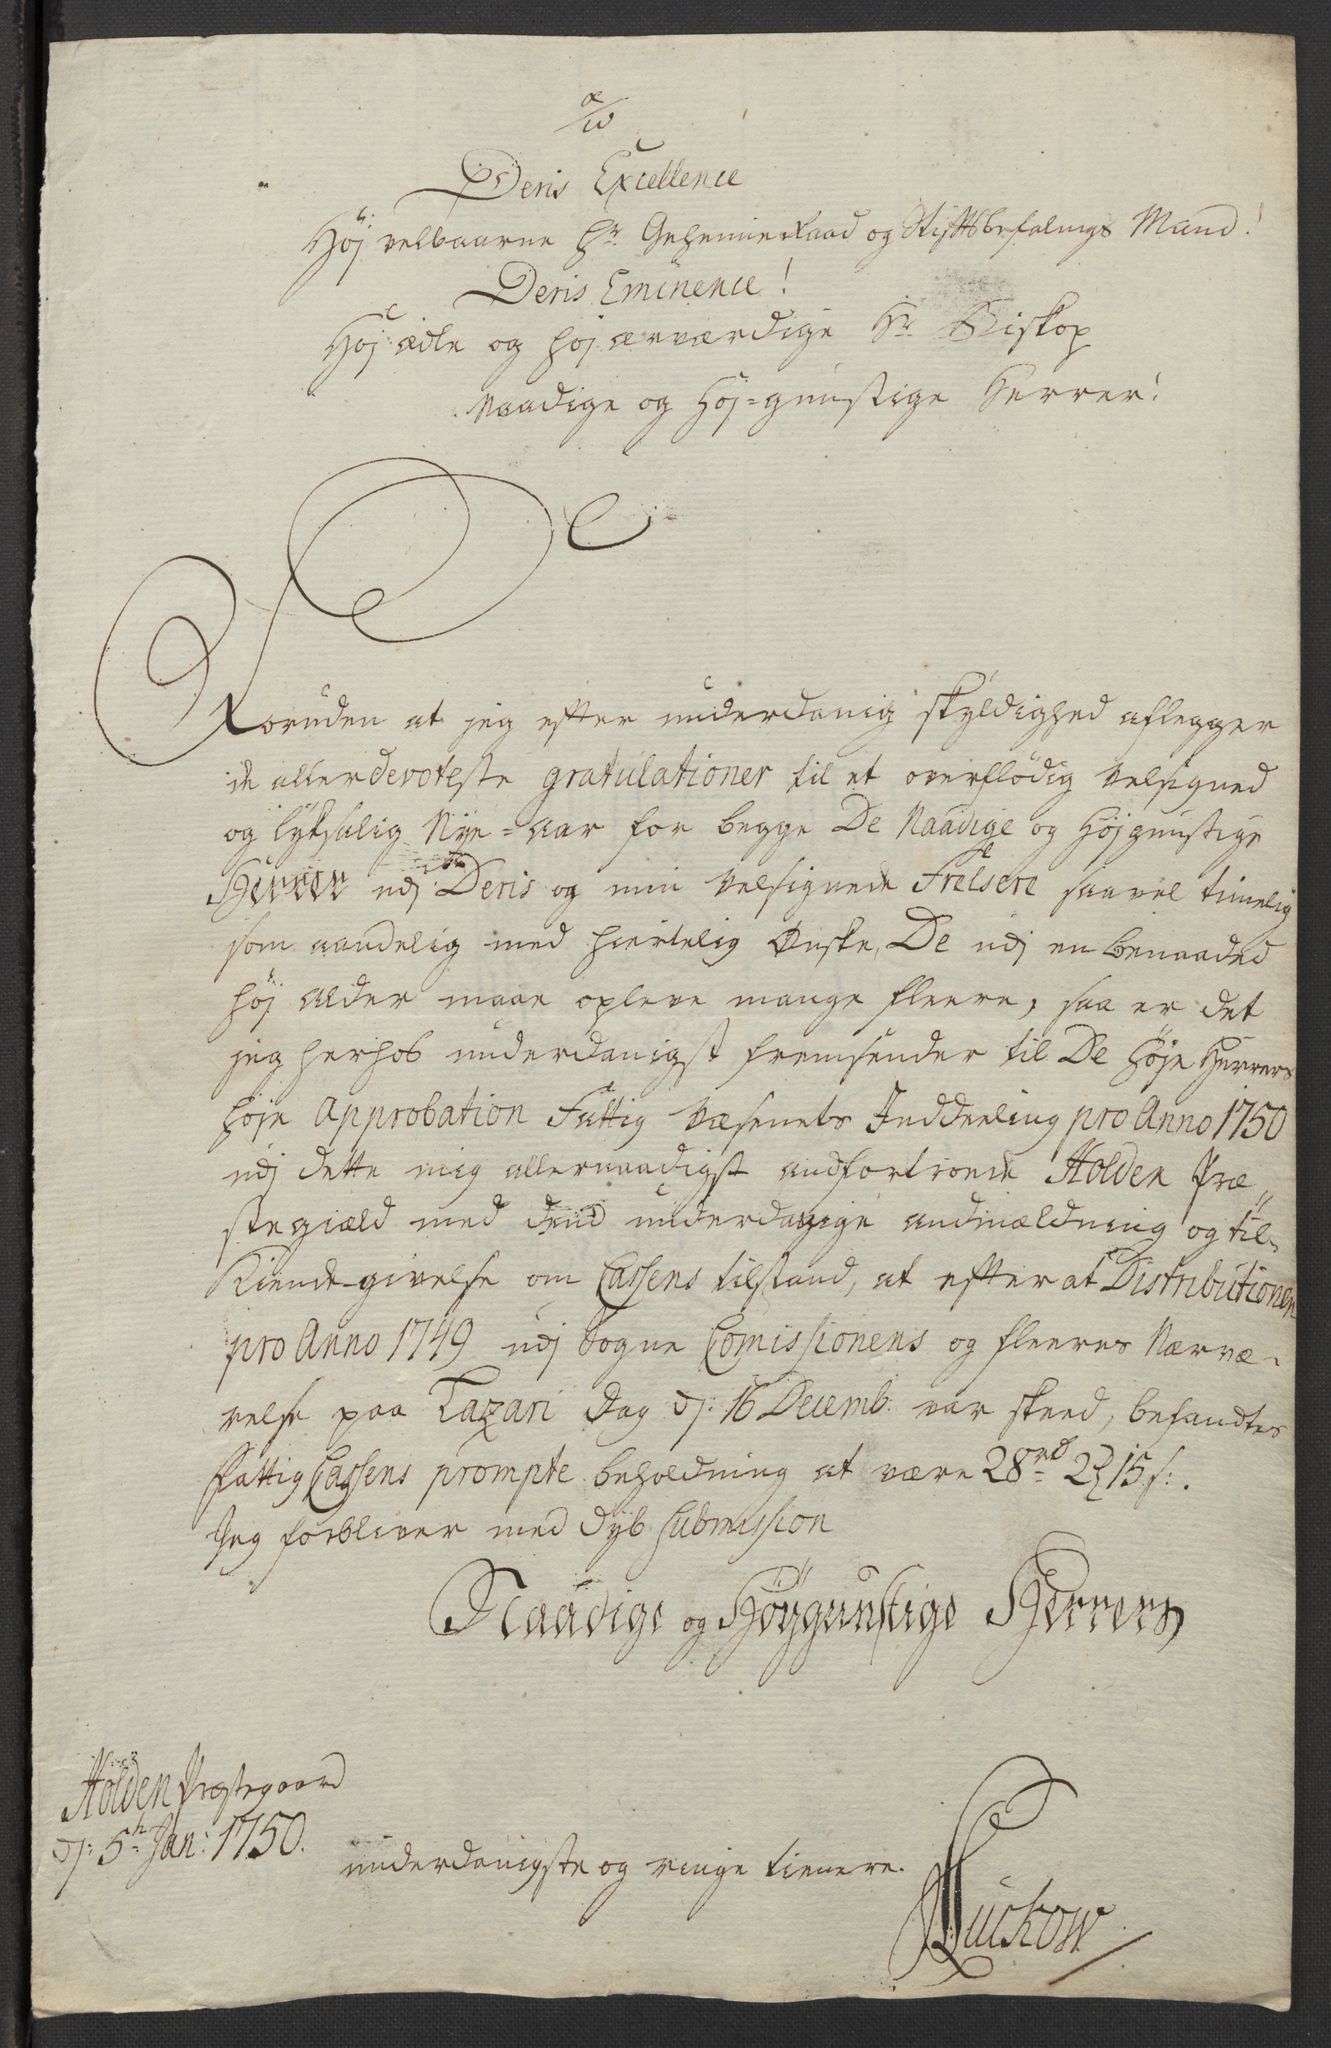 α/ω
Deris Excellence
Høj velbaarne Hr Geheime Raad og Stiftsbefalings Mand!
Deris Eminence!
Høj ædle og høj ærværdige Hr Biskop
Naadige og Høj=gunstige Herrer!
Foruden at jeg efter underdanig skyldighed aflegger
de allerdevoteste gratulationer til et overflødig velsigned
og lyksalig Nye=aar for begge De Naadige og Højgunstige
Herrer udj Deris og min velsignede Frelsere saavel timelig
som aandelig med hiertelig Ønske, De udj en benaaded
høj alder maae opleve mange fleere, saa er det
jeg herhos underdanigst fremsender til De høje Herrers
høje Approbation Fattig Væsenets Inddeeling pro Anno 1750
udj dette mig allernaadigst andfortroede Holden Præ„
stegiæld med dend underdanige andmældning og til„
Kiende-givelse om Cassens tilstand, at efter at Distributionen
pro Anno 1749 udj Sogne Comissionens og fleeres Nærvæ„
relse paa Lazari Dag d: 16 Decemb. var skeed, befandtes
Fattig Cassens prompte beholdning at være 28 rd 2 ℥ 15 s:.
Jeg forbliver med dyb submission
Naadige og Høygunstige Herrers
Holden Præstegaard
d: 5th Jan: 1750.
underdanigste og ringe tienere.
Luckow